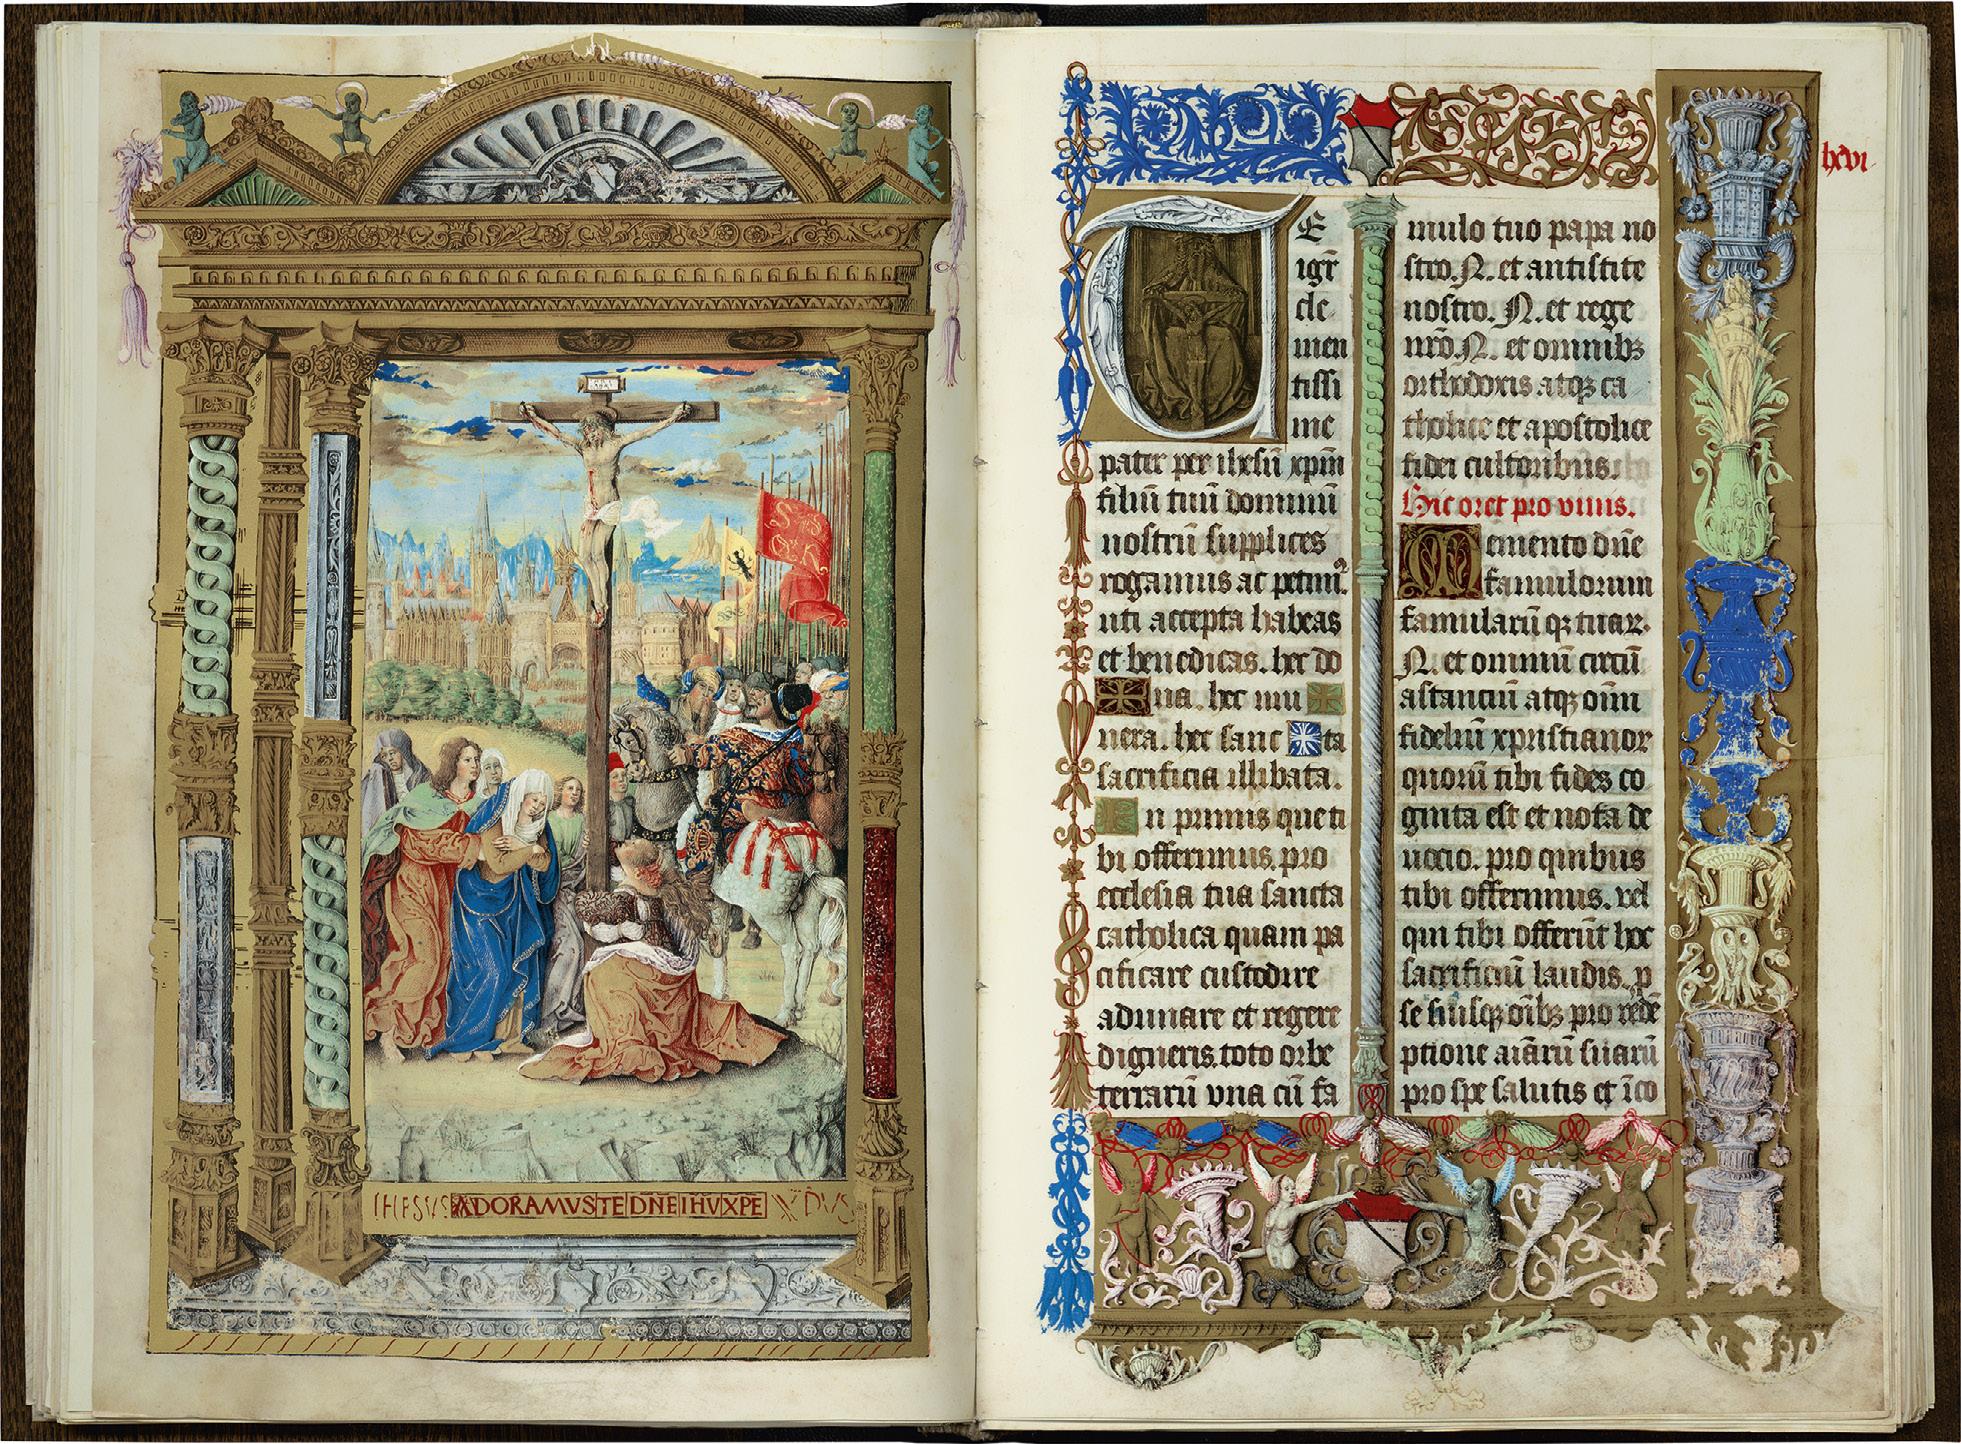 ADORAMVS TE DN̄E IHV XPE
lxvi
TE
igr̄
cle
men
tissi
me
pater per ihesū xp̄m
filiū tuū dominū
nostrū supplices
rogamus ac petim⁹
uti accepta habeas
et benedicas. hec do
na. hec mu
nera. hec sanc ta
sacrificia illibata.
In primis que ti
bi offerimus pro
ecclesia tua sancta
catholica quam pa
cificare custodire
adunare et regere
digneris. toto orbe
terrarū vna cū fa
mulo tuo papa no
stro. N. et antistite
nostro. N. et rege
nr̄o. N. et omnibꝫ
orthodoxis. atqꝫ ca
tholice et apostolice
fidei cultoribus.
Hic oret pro viuis.
Memento dn̄e
famulorum
famularū qꝫ tuarꝝ.
N. et omniū circū
astanciū atqꝫ oīm
fideliū xpristianor
quorū tibi fides co
gnita est et nota de
uocio. pro quibus
tibi offerimus. vel
qui tibi offerūt hoc
sacrificiū laudis. p̱
se suisqꝫ oībꝫ pro rede̅
ptione aīarū suarū
pro spe salutis et īco